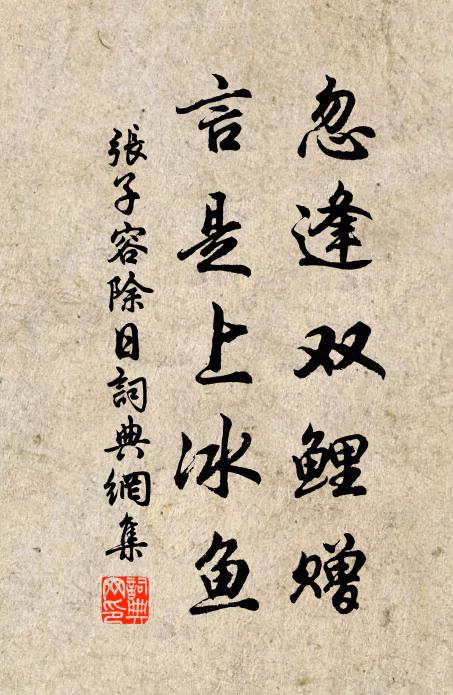 忽逢双鲤赠
言是上冰鱼
張子容除日詞典網集
詞典
网印